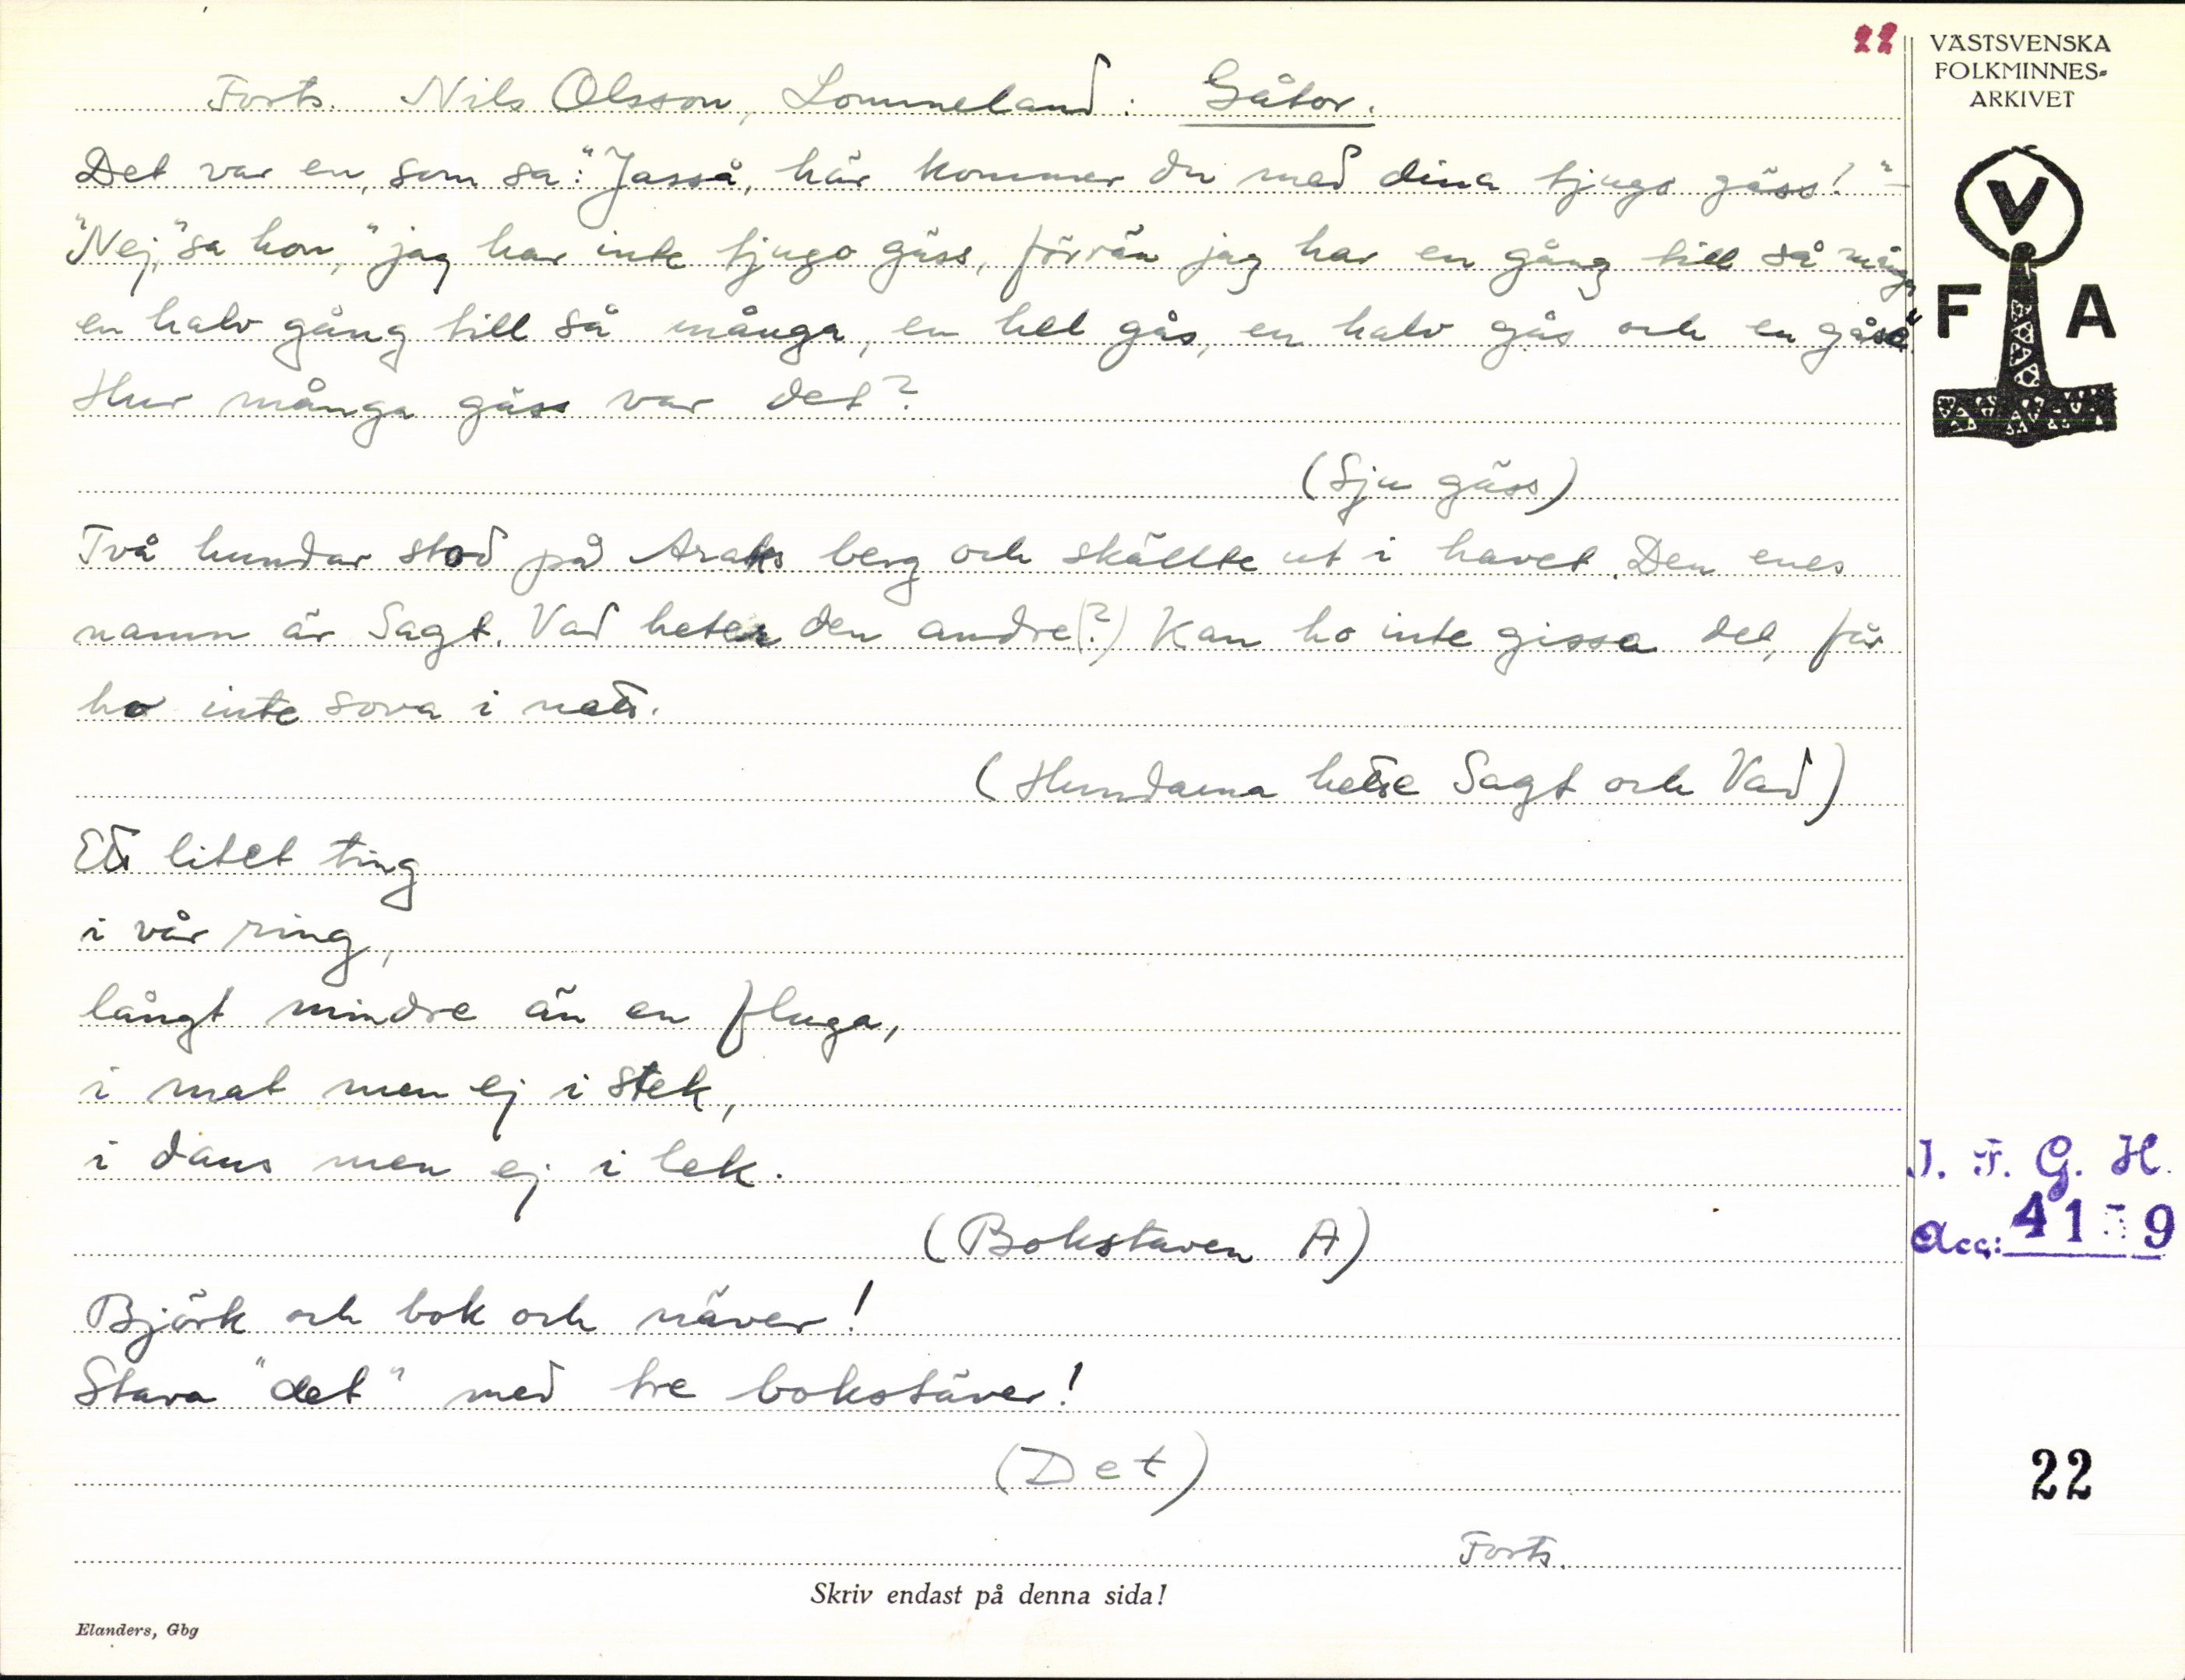 22
VÄSTSVENSKA
FOLKMINNES-
ARKIVET
Forts. Nils Olsson, Lommeland: Gåtor.
Det var en, som sa: "Jasså, här kommer du med dina tjugo gäss!" -
"Nej," sa hon, "jag har inte tjugo gäss, förrän jag har en gång till så många
en halv gång till så många, en hel gås, en halv gås och en gåse"
Hur många gäss var det?
(Sju gäss)
Två hundar stod på Araks berg och skällte ut i havet. Den enes
namn är Sagt. Vad heter den andre(?) Kan ho inte gissa det, får
ho inte sova i natt.
(Hundarna hette Sagt och Vad)
Ett litet ting
i vår ring,
långt mindre än en fluga,
i mat men ej i stek,
i dans men ej i lek.
(Bokstaven A)
Björk och bok och näver!
Stava "det" med tre bokstäver!
(Det)
Forts.
Skriv endast på denna sida!
Elanders, Gbg
V
F A
I. F. G. H.
Acc:
22